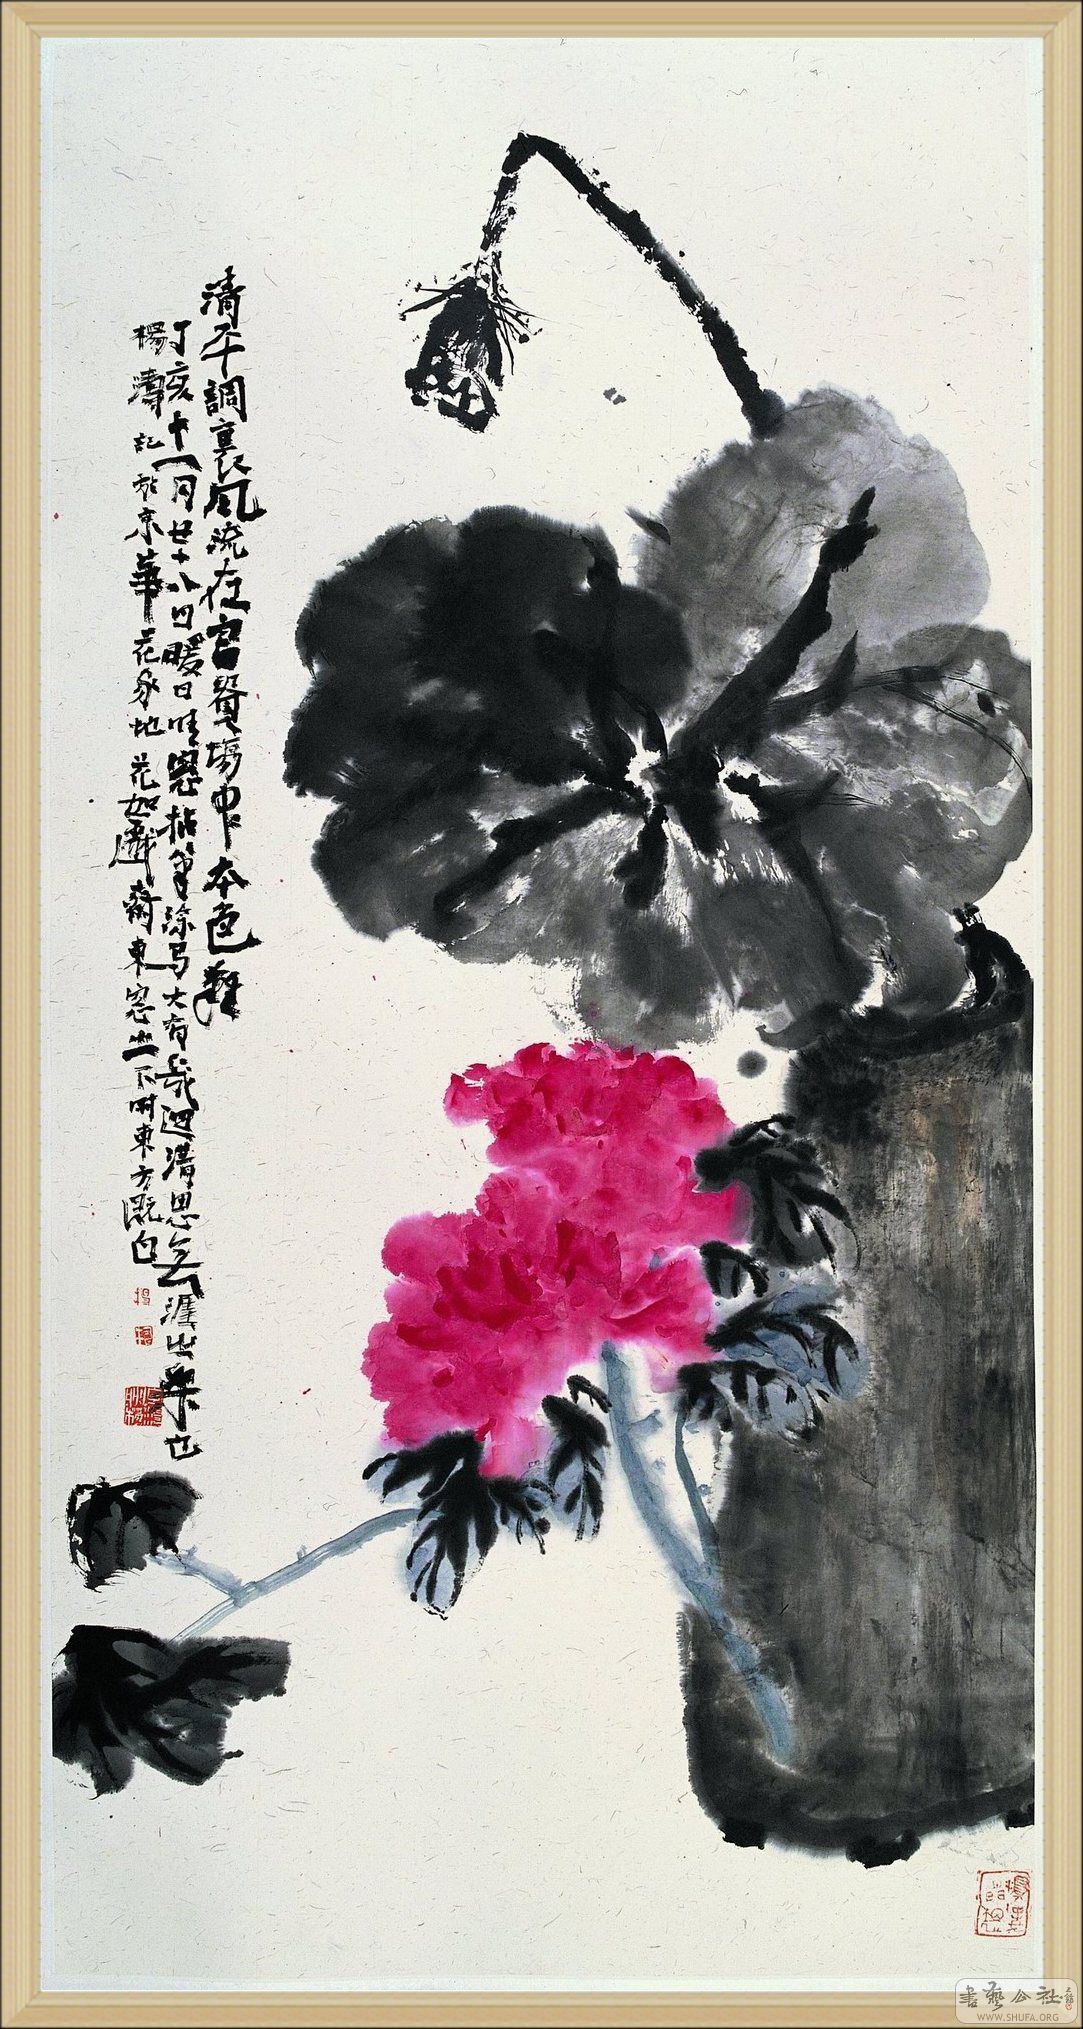 清平調裏風流在富貴場中本色難
丁亥十一月廿八日暖日晴窗拈筆涂写大有幾迴清思無涯之樂也
楊濤記於京華花家地花如邃齋東窗之下時東方既白
書藝公社
WWW.SHUFA.ORG